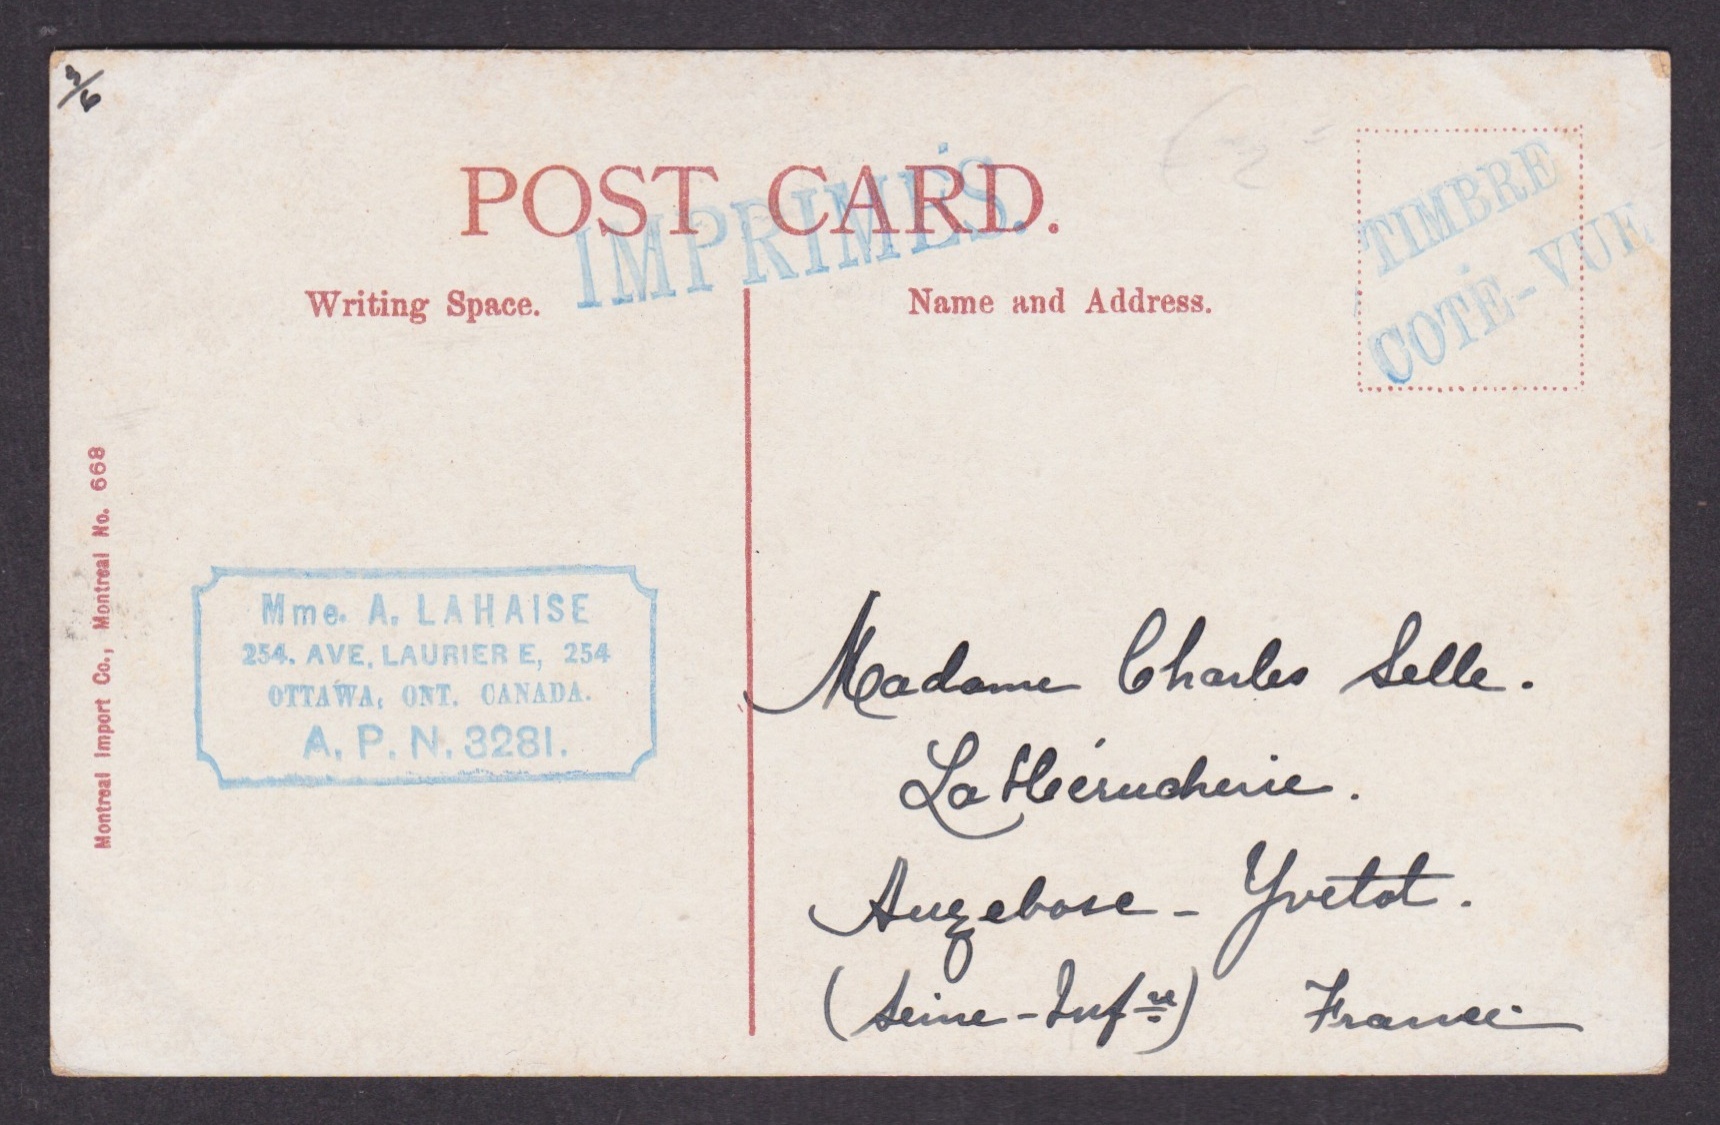 3/6
POST CARD.
IMPRIMÉS.
TIMBRE
COTÉ-VUE
Writing Space.
Name and Address.
Montreal Import Co., Montreal No. 668
Mme. A. LAHAISE
254. AVE. LAURIER E, 254
OTTAWA, ONT. CANADA.
A. P. N. 3281.
Madame Charles Selle.
La Hérucherie.
Auzebosc - Yvetot.
(Seine-Infre) France